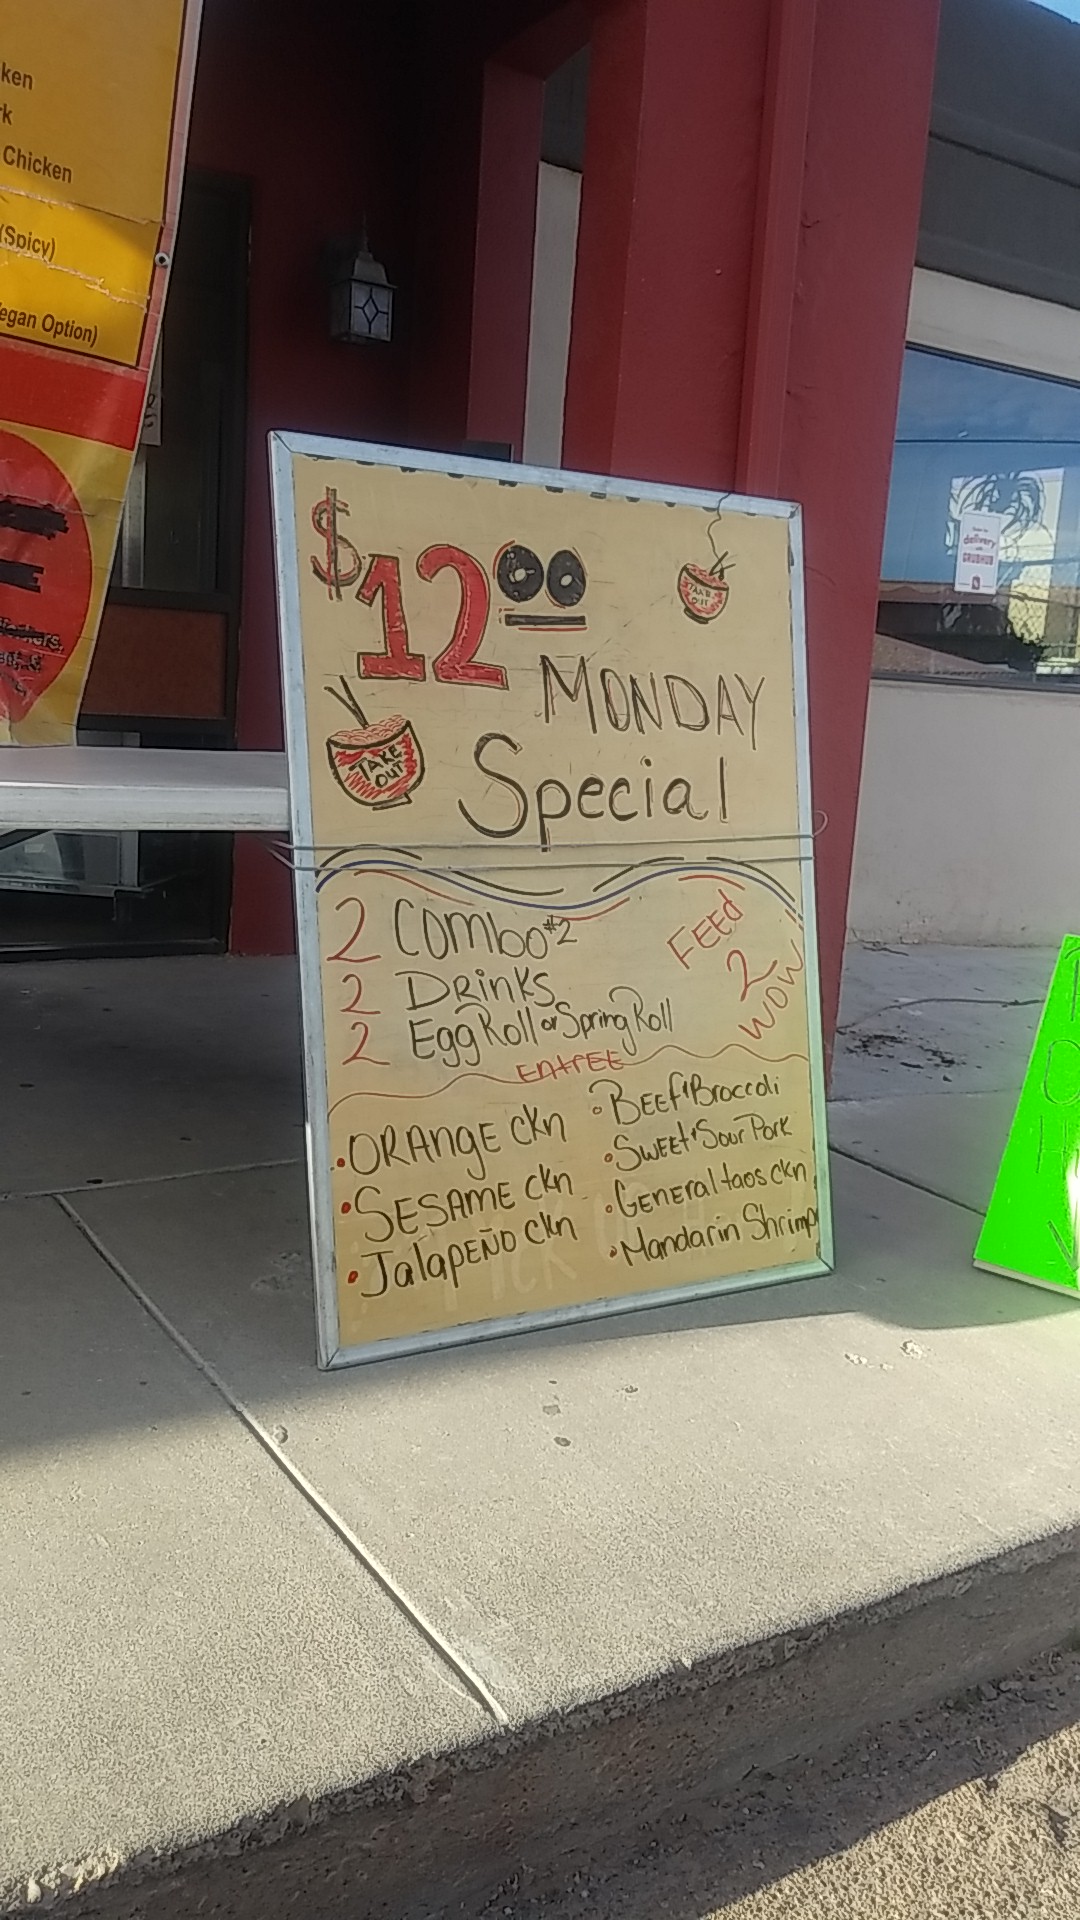 ken
rk
Chicken
(Spicy)
egan Option)
$12.00
TAKE
OUT
MONDAY
TAKE
OUT
Special
2 Combo #2
2 DRinks
2 Egg Roll or Spring Roll
FEEd
2
WOW
ENTREE
• ORANGE Ckn
• SESAME Ckn
• JalapEÑO Ckn
• BEEf & Broccoli
• SWEEt & Sour Pork
• GENEral taos ckn
• Mandarin Shrimp
delivery
with
GRUBHUB